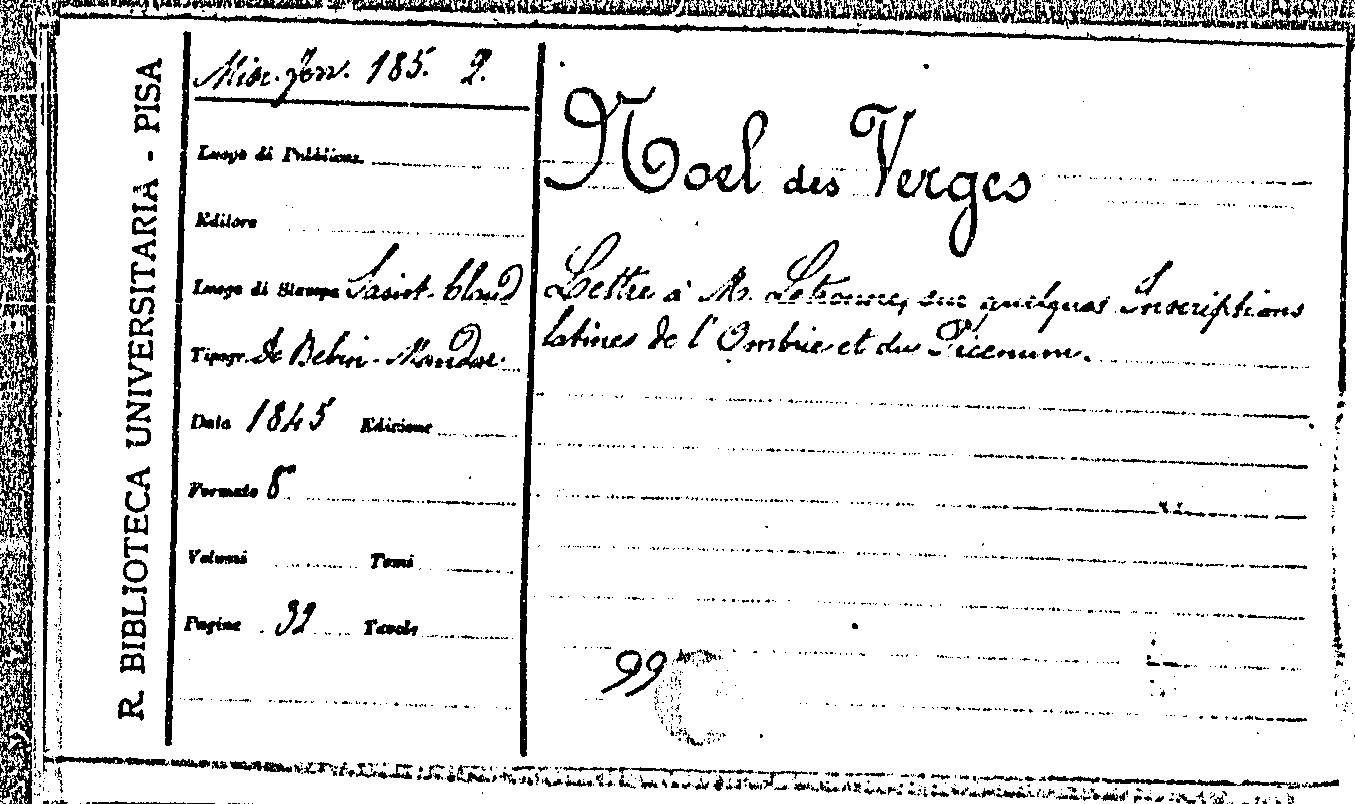 R. BIBLIOTECA UNIVERSITARIA - PISA
Misc. Ferr. 185. 2.
Luogo di Pubblicaz.
Editore
Luogo di Stampa Saint-Cloud
Tipogr. de Belin-Mandar
Data 1845 Edizione
Formato 8°
Volumi Tomi
Pagine 32 Tavole
Noel des Verges
Lettre à Mr. Letronne, sur quelques Inscriptions
latines de l'Ombrie et du Picenum.
99